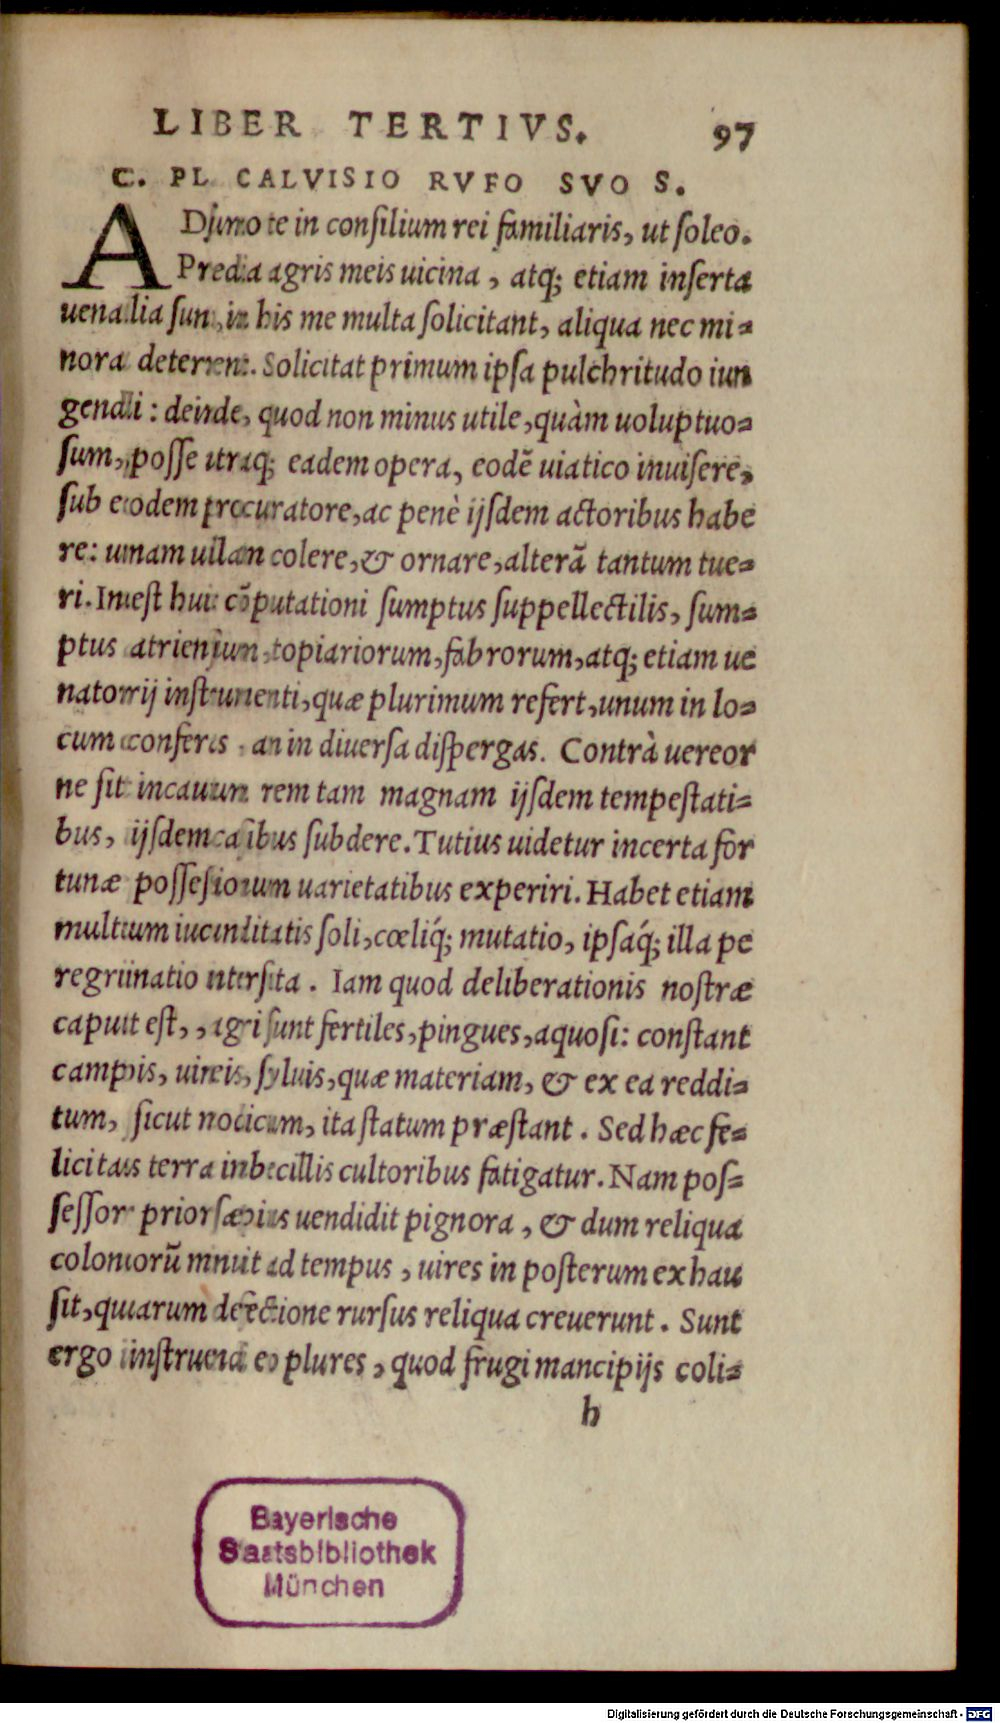 LIBER TERTIVS. 97
C. PL CALVISIO RVFO SVO S.
ADsumo te in consilium rei familiaris, ut soleo.
Predia agris meis uicina, atq; etiam inserta
uenalia sunt, in his me multa solicitant, aliqua nec mi-
nora deterrent. Solicitat primum ipsa pulchritudo iun
gendi: deinde, quod non minus utile, quàm uoluptuo-
sum, posse utraq; eadem opera, eodē uiatico inuisere,
sub eodem procuratore, ac penè ijsdem actoribus habe
re: unam uillam colere, & ornare, alterā tantum tue-
ri. Inest huic cōputationi sumptus suppellectilis, sum-
ptus atriensium, topiariorum, fabrorum, atq; etiam ue
natorij instrumenti, quæ plurimum refert, unum in lo-
cum conferas an in diuersa dispergas. Contrà uereor
ne sit incautum rem tam magnam ijsdem tempestati-
bus, ijsdem casibus subdere. Tutius uidetur incerta for
tunæ possesionum uarietatibus experiri. Habet etiam
multum iucunditatis soli, cœliq́; mutatio, ipsáq́; illa pe
regrinatio intersita. Iam quod deliberationis nostræ
caput est, agri sunt fertiles, pingues, aquosi: constant
campis, uineis, syluis, quæ materiam, & ex ea reddi-
tum, sicut modicum, ita statum præstant. Sed hæc fe-
licitas terra inbecillis cultoribus fatigatur. Nam pos-
sessor prior sæpius uendidit pignora, & dum reliqua
colonorū minuit ad tempus, uires in posterum exhau
sit, quarum defectione rursus reliqua creuerunt. Sunt
ergo instruendi eo plures, quod frugi mancipijs coli-
h
Bayerische
Staatsbibliothek
München
Digitalisierung gefördert durch die Deutsche Forschungsgemeinschaft - DFG